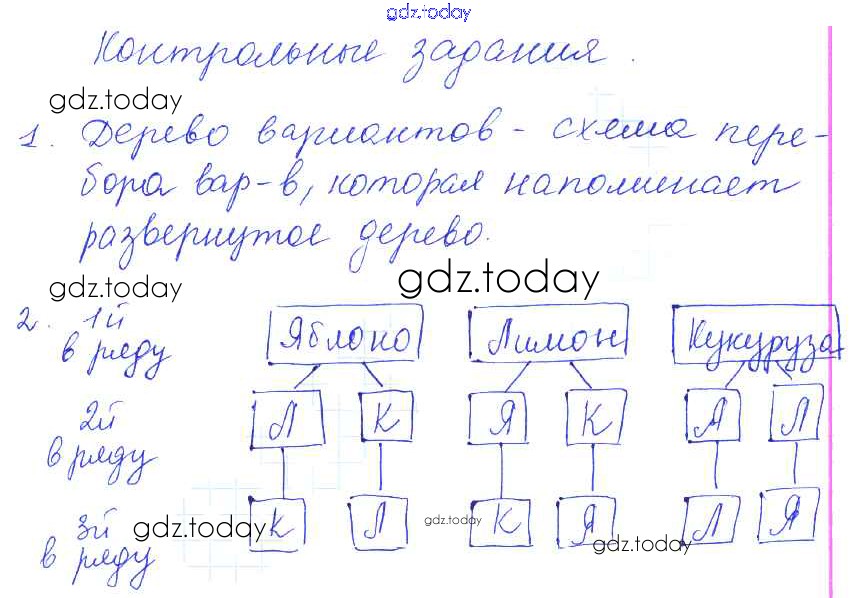 gdz.today
Контрольные задания.
gdz.today
1. Дерево вариантов - схема пере-
бора вар-в, которая напоминает
развернутое дерево.
gdz.today
gdz.today
2. 1й
в ряду
Яблоко Лимон Кукуруза
2й
в ряду
Л К Я К Я Л
3й
в ряду
К Л К Я Л Я
gdz.today
gdz.today
gdz.today